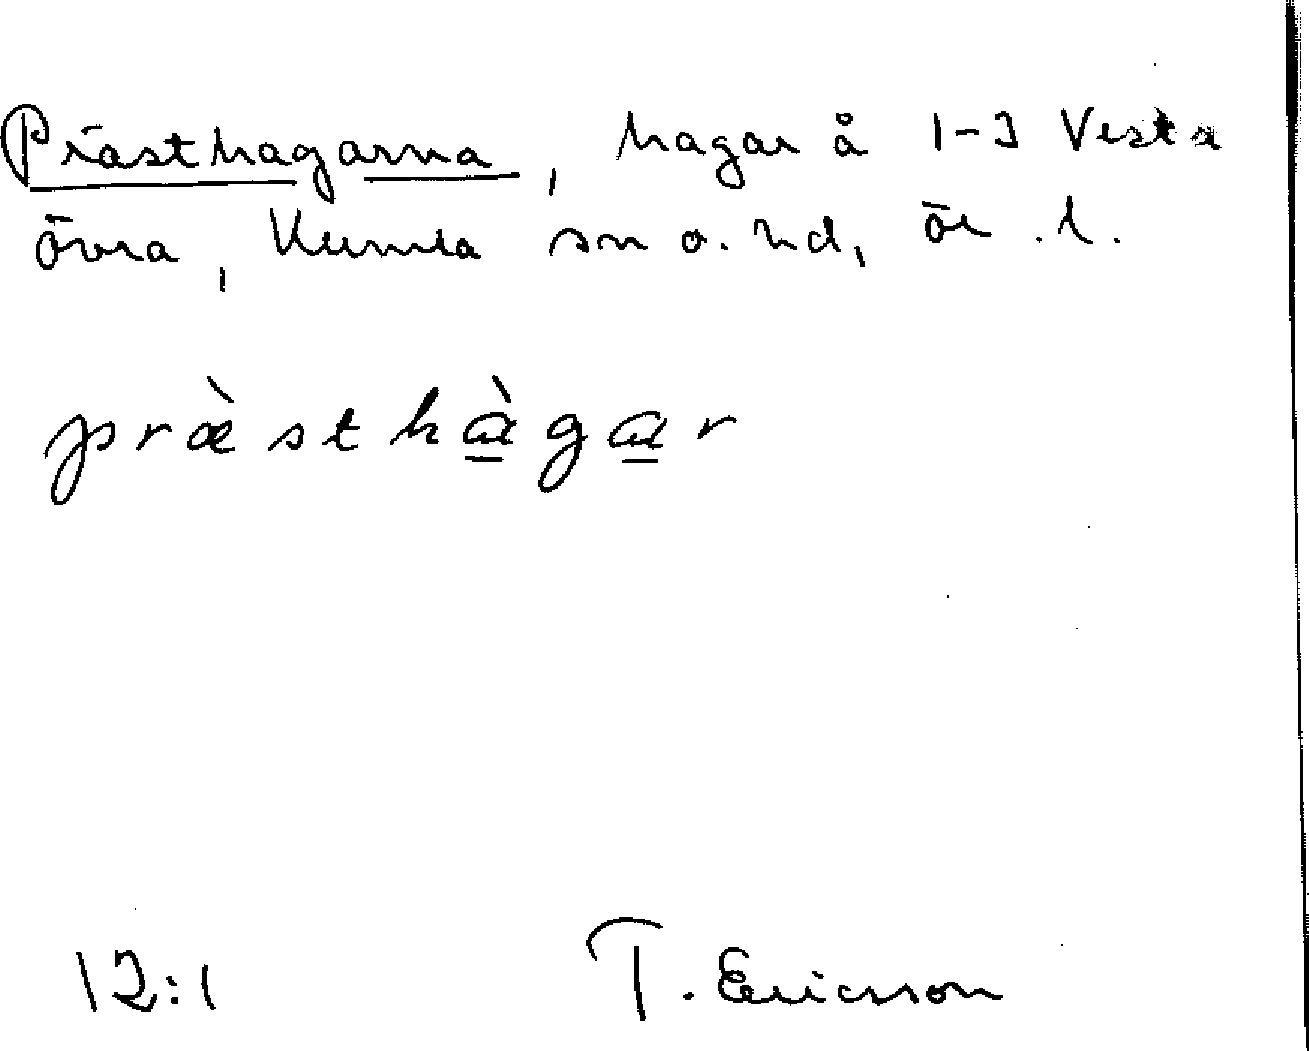 Prästhagarna, hagar å 1-3 Vesta
övra, Kumla sn o. hd, ör. l.
præ̀sthàgar
12:1 T. Ericsson